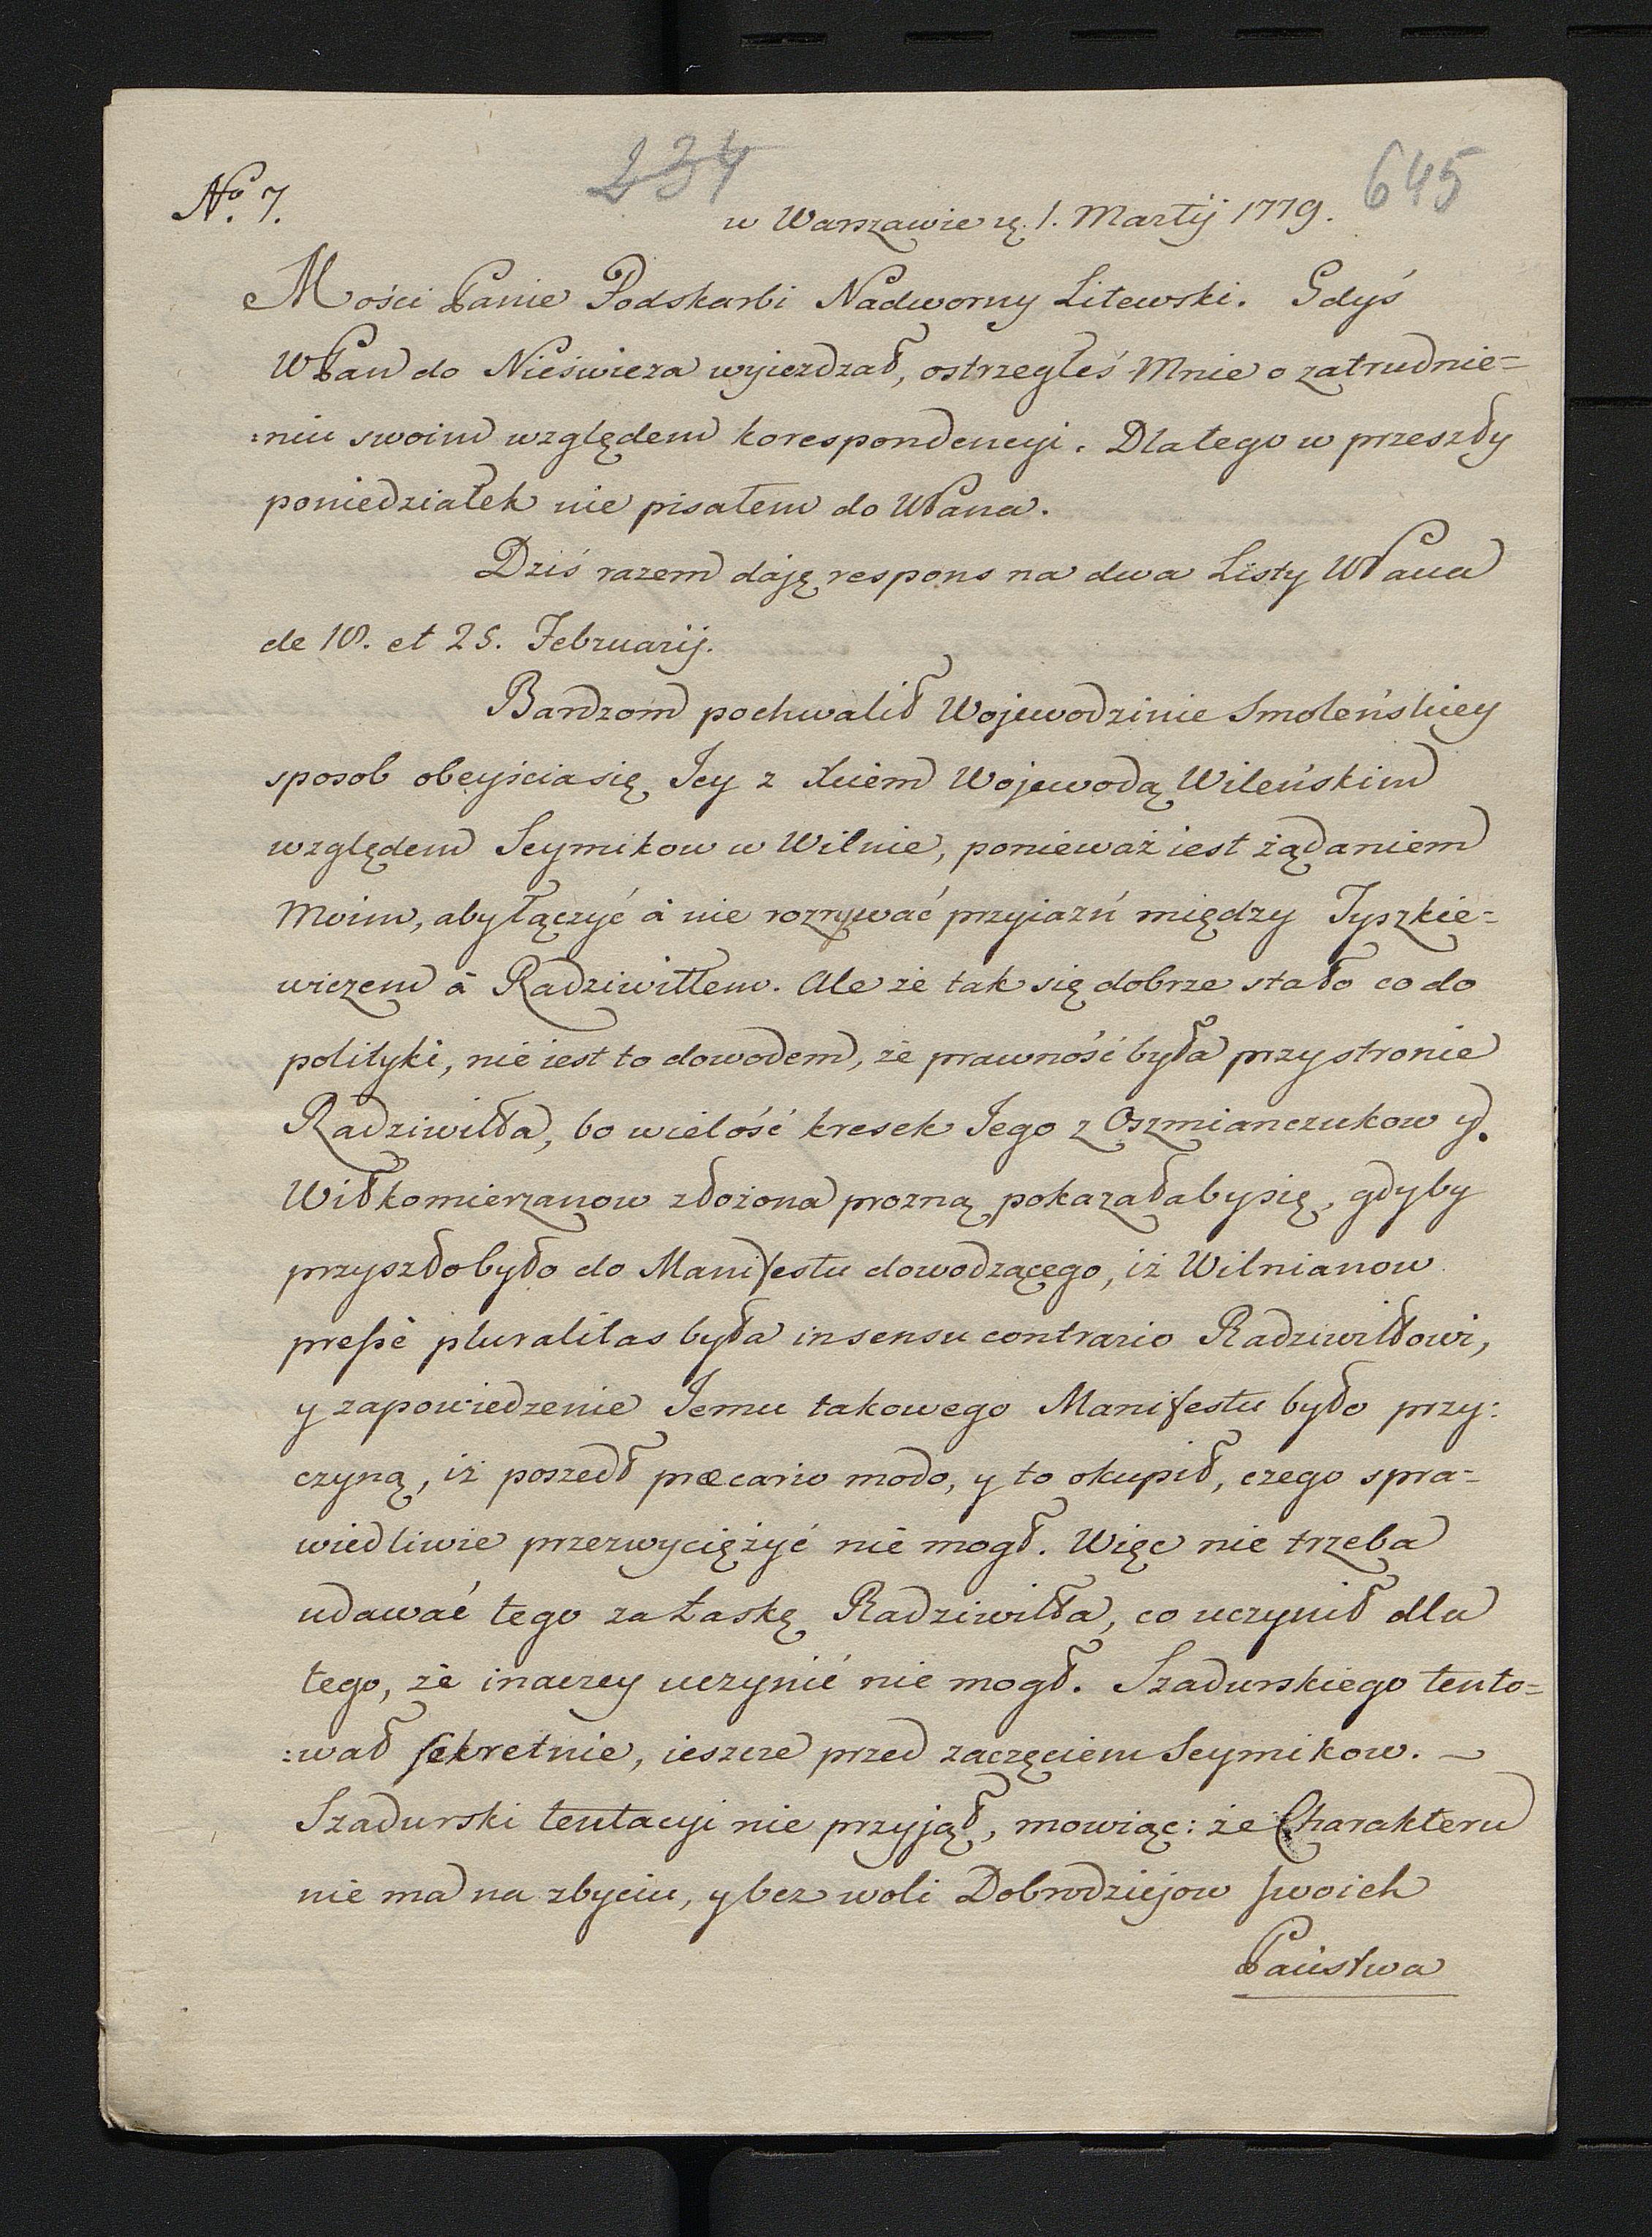 234
645
No. 7.
w Warszawie ą. 1. Martij 1779.
Mości Panie Podskarbi Nadworny Litewski. Gdyś
WPan do Nieświeza wyiezdzał, ostrzegłeś Mnie o zatrudnie=
:niu swoim względem korespondencyi. Dlatego w przeszły
poniedziałek nie pisałem do WPana.
Dziś razem daję respons na dwa Listy WPana
de 18. et 25. Februarij.
Bardzom pochwalił Wojewodzinie Smoleńskiey
sposob obeyścia się Jey z Xciem Wojewodą Wileńskim
względem Seymikow w Wilnie, ponieważ iest żądaniem
Moim, aby łączyć à nie rozrywać przyiazń między Tyszkie=
wiczem à Radziwiłłem. Ale że tak się dobrze stało co do
polityki, nie iest to dowodem, że prawność była przy stronie
Radziwiłła, bo wielość kresek Jego z Oszmianczukow y
Wiłkomierzanow złożona prozną pokazałaby się, gdyby
przyszło było do Manifestu dowodzącego, iż Wilnianow
preſsè pluralitas była in sensu contrario Radziwiłłowi,
y zapowiedzenie Jemu takowego Manifestu było przy:
czyną, iż poszedł præcario modo, y to okupił, czego spra=
wiedliwie przezwyciężyć nie mogł. Więc nie trzeba
udawać tego za Łaskę Radziwiłła, co uczynił dla
tego, że inaczey uczynić nie mogł. Szadurskiego tento=
:wał sekretnie, ieszcze przed zaczęciem Seymikow. –
Szadurski tentacyi nie przyjął, mowiąc: że Charakteru
nie ma na zbyciu, y bez woli Dobrodziejow swoich
Państwa